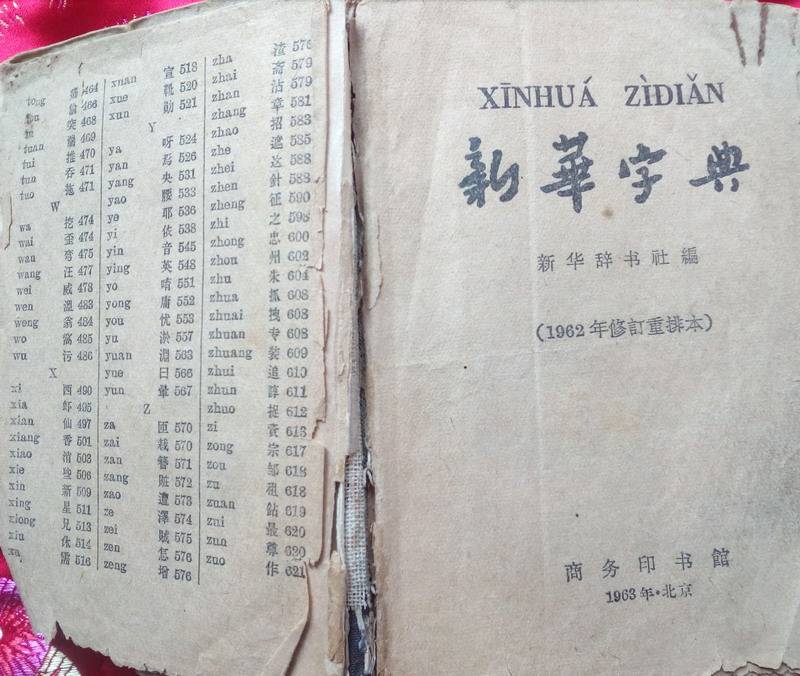 tong 464
466
突 468
tuan 469
tui 推 470
tun 吞 471
tuo 拖 471
W
wa 挖 474
wai 歪 474
wan 弯 475
wang 汪 477
wei 威 478
wen 溫 483
weng 翁 484
wo 窩 485
wu 污 486
X
xi 西 490
xia 495
xian 仙 497
xiang 香 501
xiao 消 503
xie 些 506
xin 新 509
xing 星 511
xiong 兄 513
xiu 休 514
xu 需 516
xuan 宣 518
xue 靴 520
xun 勋 521
Y
ya 呀 524
yan 焉 526
yang 央 531
yao 腰 533
ye 耶 536
yi 依 538
yin 音 545
ying 英 548
yo 唷 551
yong 庸 552
you 优 553
yu 淤 557
yuan 淵 563
yue 曰 566
yun 暈 567
Z
za 匝 570
zai 栽 570
zan 簪 571
zang 赃 572
zao 遭 573
ze 澤 574
zei 賊 575
zen 怎 576
zeng 增 576
zha 渣 576
zhai 斋 579
zhan 沾 579
zhang 章 581
zhao 招 583
zhe 遮 585
zhei 这 588
zhen 針 588
zheng 征 590
zhi 之
zhong 忠 600
zhou 州 602
zhu 朱 604
zhua 抓 608
zhuai 拽 608
zhuan 专 608
zhuang 装 609
zhui 追 610
zhun 諄 611
zhuo 捉 612
zi 資 613
zong 宗 617
zou 邹 618
zu 租 618
zuan 鉆 619
zui 最 620
zun 尊 620
zuo 作 621
XĪNHUÁ ZÌDIǍN
新華字典
新华辞书社編
（1962年修訂重排本）
商务印书館
1963年·北京